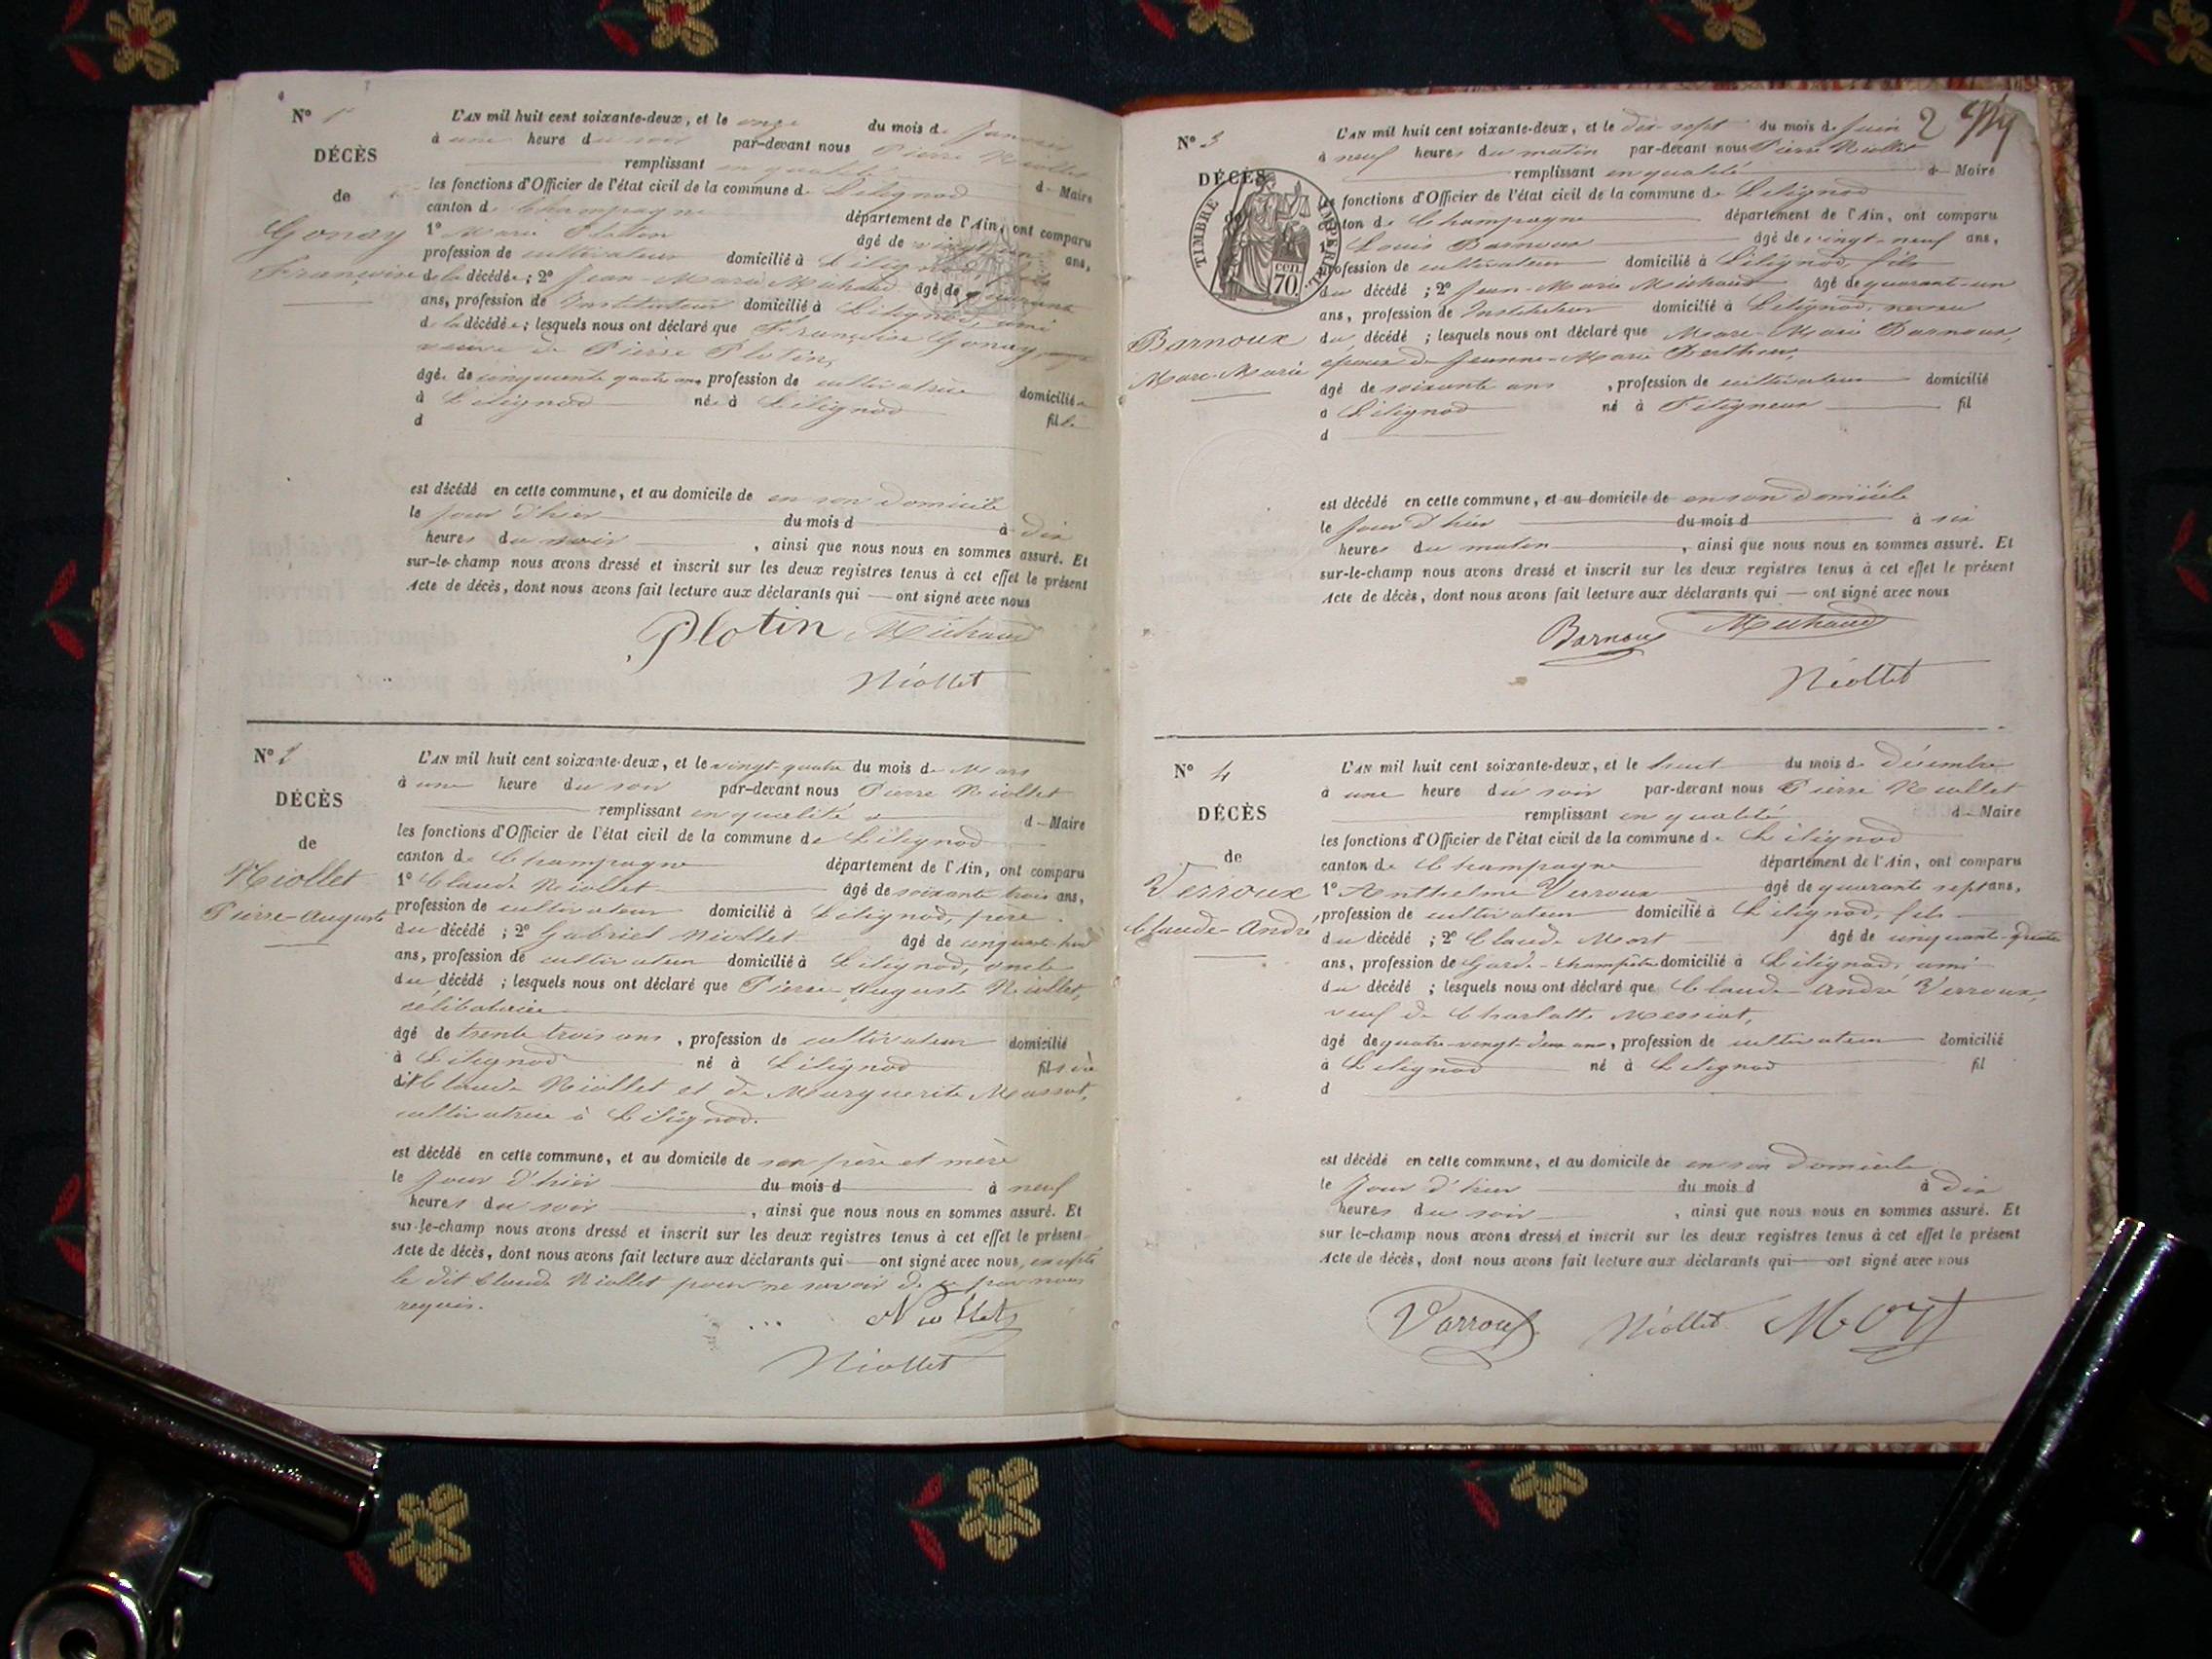 N° 1
DÉCÈS
de
Gonay
Françoise
L'AN mil huit cent soixante-deux, et le onze du mois de Janvier
à une heure du soir par-devant nous Pierre Niollet
remplissant en qualité de Maire
les fonctions d'Officier de l'état civil de la commune de Lilignod
canton de Champagne département de l'Ain, ont comparu
1° Marie Plotin âgé de ans,
profession de cultivateur domicilié à Lilignod, fils
de la décédée ; 2° Jean-Marie Michaud âgé de quarante
ans, profession de Instituteur domicilié à Lilignod, ami
de la décédée ; lesquels nous ont déclaré que Françoise Gonay
veuve de Pierre Plotin,
âgée de cinquante quatre ans profession de cultivatrice domiciliée
à Lilignod née à Lilignod fille
d
est décédé en cette commune, et au domicile de en son domicile
le jour d'hier du mois d à dix
heures du soir , ainsi que nous nous en sommes assuré. Et
sur-le-champ nous avons dressé et inscrit sur les deux registres tenus à cet effet le présent
Acte de décès, dont nous avons fait lecture aux déclarants qui ont signé avec nous
Plotin Michaud
Niollet
N° 2
DÉCÈS
de
Niollet
Pierre-Auguste
L'AN mil huit cent soixante-deux, et le vingt-quatre du mois de Mars
à une heure du soir par-devant nous Pierre Niollet
remplissant en qualité d Maire
les fonctions d'Officier de l'état civil de la commune de Lilignod
canton de Champagne département de l'Ain, ont comparu
1° Claude Niollet âgé de soixante trois ans,
profession de cultivateur domicilié à Lilignod, père
du décédé ; 2° Gabriel Niollet âgé de cinquante
ans, profession de cultivateur domicilié à Lilignod, oncle
du décédé ; lesquels nous ont déclaré que Pierre-Auguste Niollet,
célibataire
âgé de trente trois ans , profession de cultivateur domicilié
à Lilignod né à Lilignod fils
dit Claude Niollet et de Marguerite Massot,
cultivatrice à Lilignod.
est décédé en cette commune, et au domicile de son père et mère
le jour d'hier du mois d à neuf
heures du soir , ainsi que nous nous en sommes assuré. Et
sur-le-champ nous avons dressé et inscrit sur les deux registres tenus à cet effet le présent
Acte de décès, dont nous avons fait lecture aux déclarants qui ont signé avec nous, excepté
le dit Claude Niollet pour ne savoir de ce par nous
requis.
Niollet
Niollet
2
N° 3
DÉCÈS
TIMBRE IMPÉRIAL
70 CEN.
Barnoux
Marc-Marie
L'AN mil huit cent soixante-deux, et le dix-sept du mois de Juin
à neuf heures du matin par-devant nous Pierre Niollet
remplissant en qualité de Maire
les fonctions d'Officier de l'état civil de la commune de Lilignod
canton de Champagne département de l'Ain, ont comparu
1° Louis Barnoux âgé de vingt-neuf ans,
profession de cultivateur domicilié à Lilignod, fils
du décédé ; 2° Jean-Marie Michaud âgé de quarante-un
ans, profession de Instituteur domicilié à Lilignod, neveu
du décédé ; lesquels nous ont déclaré que Marc-Marie Barnoux,
époux de Jeanne-Marie Berthier,
âgé de soixante ans , profession de cultivateur domicilié
à Lilignod né à fil
d
est décédé en cette commune, et au domicile de en son domicile
le jour d'hier du mois d à six
heures du matin , ainsi que nous nous en sommes assuré. Et
sur-le-champ nous avons dressé et inscrit sur les deux registres tenus à cet effet le présent
Acte de décès, dont nous avons fait lecture aux déclarants qui ont signé avec nous
Barnoux Michaud
Niollet
N° 4
DÉCÈS
de
Verroux
Claude-André
L'AN mil huit cent soixante-deux, et le huit du mois de Décembre
à une heure du soir par-devant nous Pierre Niollet
remplissant en qualité de Maire
les fonctions d'Officier de l'état civil de la commune de Lilignod
canton de Champagne département de l'Ain, ont comparu
1° Anthelme Verroux âgé de quarante sept ans,
profession de cultivateur domicilié à Lilignod, fils
du décédé ; 2° Claude Mort âgé de cinquante-quatre
ans, profession de Garde-champêtre domicilié à Lilignod, ami
du décédé ; lesquels nous ont déclaré que Claude-André Verroux,
veuf de Charlotte Messiat,
âgé de quatre-vingt-deux ans, profession de cultivateur domicilié
à Lilignod né à Lilignod fil
d
est décédé en cette commune, et au domicile de en son domicile
le jour d'hier du mois d à dix
heures du soir , ainsi que nous nous en sommes assuré. Et
sur-le-champ nous avons dressé et inscrit sur les deux registres tenus à cet effet le présent
Acte de décès, dont nous avons fait lecture aux déclarants qui ont signé avec nous
Varroux Niollet Mort